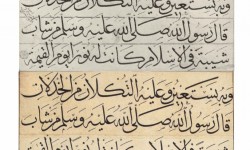 وبه نستعين وعليه التكلان من الخذلان
قال رسول الله صلى الله عليه وسلم من شاب
شيبة في الاسلام كانت له نورا يوم القيمة
وبه نستعين وعليه التكلان من الخذلان
قال رسول الله صلى الله عليه وسلم من شاب
شيبة في الاسلام كانت له نورا يوم القيمة